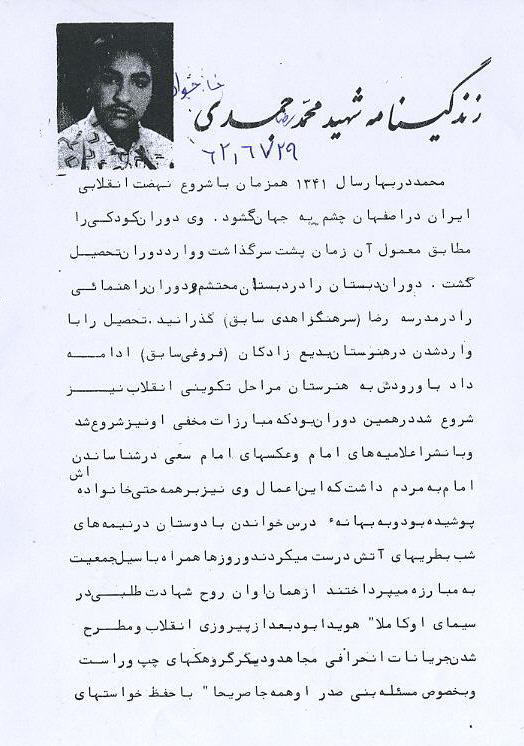 زندگینامه شهید محمّد رضا حمیدی
۶۲٫۶٫۲۹
محمد در بهار سال ۱۳۴۱ همزمان با شروع نهضت انقلابی
ایران در اصفهان چشم به جهان گشود . وی دوران کودکی را
مطابق معمول آن زمان پشت سر گذاشت و وارد دوران تحصیل
گشت . دوران دبستان را در دبستان محتشم و دوران راهنمائی
را در مدرسه رضا (سرهنگ زاهدی سابق) گذرانید . تحصیل را با
وارد شدن در هنرستان بدیع زادگان (فروغی سابق) ادامه
داد با ورودش به هنرستان مراحل تکوینی انقلاب نیز
شروع شد در همین دوران بود که مبارزات مخفی او نیز شروع شد
و با نشر اعلامیه های امام و عکسهای امام سعی در شناساندن
امام به مردم داشت که این اعمال وی نیز بر همه حتی خانواده اش
پوشیده بود و به بهانهء درس خواندن با دوستان در نیمه های
شب بطریهای آتش درست میکردند و روزها همراه با سیل جمعیت
به مبارزه میپرداختند از همان اوان روح شهادت طلبی در
سیمای او کاملا" هویدا بود بعد از پیروزی انقلاب و مطرح
شدن جریانات انحرافی مجاهد و دیگر گروهکهای چپ و راست
و بخصوص مسئله بنی صدر او همه جا صریحا" با حفظ خواستهای